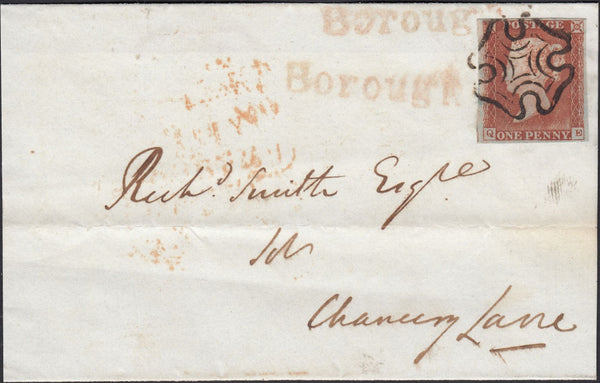 Borough
Borough
POSTAGE
Q E
ONE PENNY
Richd Smith Esqre
Solr
Chancery Lane